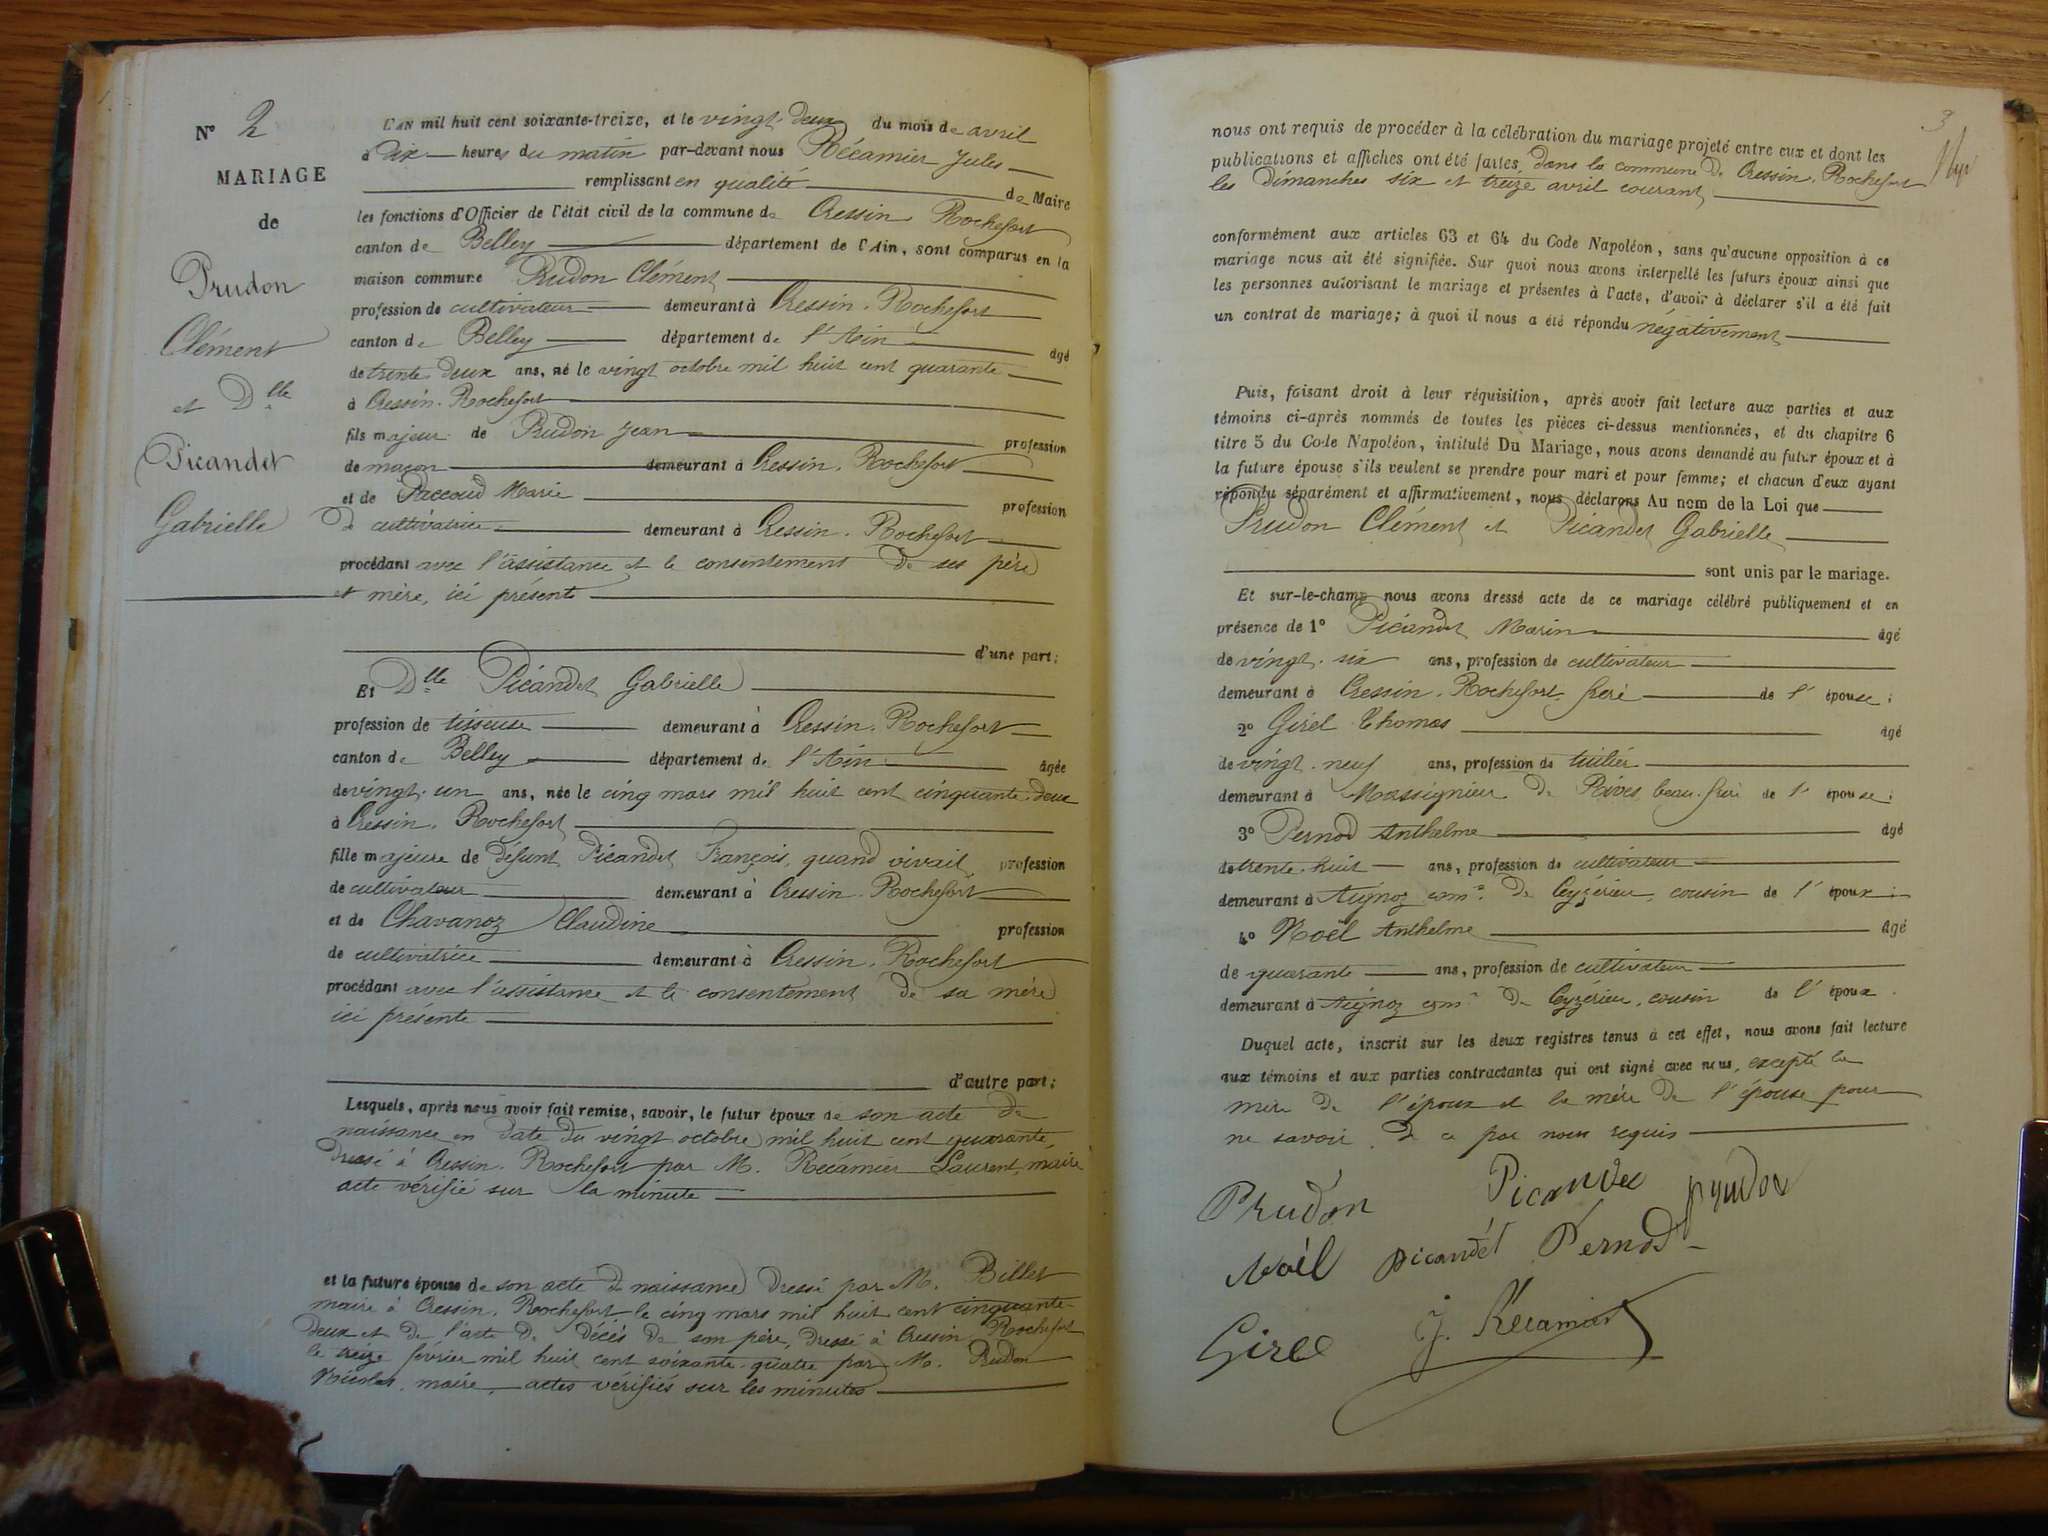 N° 2
MARIAGE
de
Prudon
Clément
et Dlle
Picandet
Gabrielle
L'AN mil huit cent soixante-treize, et le vingt deux du mois de avril
à dix heures du matin par-devant nous Récamier Jules
remplissant en qualité de Maire
les fonctions d'Officier de l'état civil de la commune de Cressin Rochefort
canton de Belley département de l'Ain, sont comparus en la
maison commune Prudon Clément
profession de cultivateur demeurant à Cressin-Rochefort
canton de Belley département de l'Ain âgé
de trente deux ans, né le vingt octobre mil huit cent quarante
à Cressin-Rochefort
fils majeur de Prudon Jean profession
de maçon demeurant à Cressin, Rochefort
et de Paccoud Marie profession
de cultivatrice demeurant à Cressin-Rochefort
procédant avec l'assistance et le consentement de ses père
et mère, ici présents
d'une part;
Et Dlle Picandet Gabrielle
profession de tisseuse demeurant à Cressin-Rochefort
canton de Belley département de l'Ain âgée
de vingt-un ans, née le cinq mars mil huit cent cinquante-deux
à Cressin, Rochefort
fille majeure de défunt Picandet François, quand vivait profession
de cultivateur demeurant à Cressin-Rochefort
et de Chavanoz Claudine profession
de cultivatrice demeurant à Cressin, Rochefort
procédant avec l'assistance et le consentement de sa mère
ici présente
d'autre part;
Lesquels, après nous avoir fait remise, savoir, le futur époux de son acte de
naissance en date du vingt octobre mil huit cent quarante,
dressé à Cressin-Rochefort par M. Récamier Laurent, maire
acte vérifié sur la minute
et la future épouse de son acte de naissance dressé par M. Billet
maire à Cressin-Rochefort le cinq mars mil huit cent cinquante-
deux et de l'acte de décès de son père, dressé à Cressin Rochefort
le treize février mil huit cent soixante-quatre par M. Prudon
Nicolas, maire, actes vérifiés sur les minutes
3
nous ont requis de procéder à la célébration du mariage projeté entre eux et dont les
publications et affiches ont été faites, dans la commune de Cressin, Rochefort
les Dimanches six et treize avril courant
conformément aux articles 63 et 64 du Code Napoléon, sans qu'aucune opposition à ce
mariage nous ait été signifiée. Sur quoi nous avons interpellé les futurs époux ainsi que
les personnes autorisant le mariage et présentes à l'acte, d'avoir à déclarer s'il a été fait
un contrat de mariage; à quoi il nous a été répondu négativement
Puis, faisant droit à leur réquisition, après avoir fait lecture aux parties et aux
témoins ci-après nommés de toutes les pièces ci-dessus mentionnées, et du chapitre 6
titre 5 du Code Napoléon, intitulé Du Mariage, nous avons demandé au futur époux et à
la future épouse s'ils veulent se prendre pour mari et pour femme; et chacun d'eux ayant
répondu séparément et affirmativement, nous déclarons Au nom de la Loi que
Prudon Clément et Picandet Gabrielle
sont unis par le mariage.
Et sur-le-champ nous avons dressé acte de ce mariage célébré publiquement et en
présence de 1° Picandet Marin âgé
de vingt-six ans, profession de cultivateur
demeurant à Cressin-Rochefort frère de l'épouse;
2° Girel Thomas âgé
de vingt-neuf ans, profession de tuilier
demeurant à Massignieu de Rives, beau-frère de l'épouse;
3° Pernod Anthelme âgé
de trente-huit ans, profession de cultivateur
demeurant à Aignoz com.ne de Ceyzérieu, cousin de l'époux;
4° Noël Anthelme âgé
de quarante ans, profession de cultivateur
demeurant à Aignoz com.ne de Ceyzérieu, cousin de l'époux.
Duquel acte, inscrit sur les deux registres tenus à cet effet, nous avons fait lecture
aux témoins et aux parties contractantes qui ont signé avec nous, excepté la
mère de l'époux et la mère de l'épouse pour
ne savoir, de ce par nous requis
Prudon Picandet Prudon
Noël Picandet Pernod
Girel J. Récamier